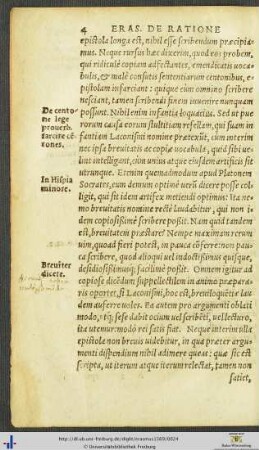 4 ERAS. DE RATIONE
epistola longa est, nihil esse scribendum præcipia-
mus. Neque rursus hæc dixerim, quod eos probem,
qui ridiculè copiam adfectantes, emendicatis voca-
bulis, & malè consutis sententiarum centonibus, e-
pistolam infarciunt: quique cùm omnino scribere
nesciant, tamen scribendi finem invenire nunquam
possunt. Nihil enim infantia loquacius. Sed ut pue-
rorum causa eorum stultitiam refellam, qui suam in-
fantiam Laconismi nomine prætexũt, cùm interim
nec ipsa brevitatis ac copiæ vocabula, quid sibi ve-
lint intelligant, cùm unius atque ejusdem artificis sit
utrunque. Etenim quemadmodum apud Platonem
Socrates, eum demum optimè verũ dicere posse colli-
git, qui sit idem artifex metiendi optimus: Ita ne-
mo brevitatis nomine rectè laudabitur, qui non i-
dem copiosissimè scribere possit. Nam quid tandem
est, brevitatem præstare? Nempe maximam rerum
vim, quoad fieri potest, in pauca cõferre: non pau-
ca scribere, quod alioqui vel indoctissimus quisque,
desidiosissimusq; facillimè possit. Omnem igitur ad
copiosè dicẽdum suppellectilem in animo præpara-
ris oportet, si Laconismi, hoc est, breviloquẽtiæ lau-
dem auferre voles. Ea autem pro argumenti oblati
modo, utq; sese dabit ocium vel scribẽti, vel lecturo,
ita utemur: modò rei satis fiat. Neque interim ulla
epistola non brevis videbitur, in qua præter argu-
menti dispendium nihil adimere queas: quæ sic est
scripta, ut iterum atque iterum relectat, tamen non
satiet,
De cento
ne lege
proverb.
farcire cẽ
tones.
In Hippia
minore.
Breviter
dicere.
http://dl.ub.uni-freiburg.de/diglit/erasmus1569/0024
© Universitätsbibliothek Freiburg